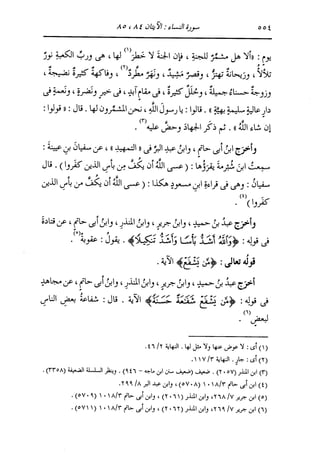 ٥٥٤ سورة النساء : الآيتان ٨٤، ٨٥
يوم : « ألا هل مشمِّرٌ للجنةِ ، فإن الجنةَ لا خَطَرَ(١) لها ، هى وربِّ الكعبةِ نورٌ
تلألأُ ، وريحانةٌ تهتزُّ ، وقصرٌ مَشِيدٌ ، ونَهَرٌ مطَّردٌ(٢) ، وفاكهةٌ كثيرةٌ نضيجةٌ ،
وزوجةٌ حسناءُ جميلةٌ ، وحُلَلٌ كثيرةٌ ، فى مقامٍ أبدٍ ، فى خيرٍ ونَضرةٍ ، ونَعمةٍ فى
دارٍ عاليةٍ سليمةٍ بهيَّةٍ » . قالوا : يا رسولَ اللهِ ، نحن المشمِّرون لها . قال : « قولوا :
إن شاء اللهُ » . ثم ذكر الجهادَ وحضَّ عليه(٣) .
وأخرَج ابنُ أبى حاتمٍ ، وابنُ عبدِ البرِّ فى « التمهيدِ » ، عن سفيانَ بنِ عيينةَ :
سمِعتُ ابنَ شُبْرمةَ يقرؤُها : ( عسى اللهُ أن يكُفَّ مِن بأسِ الذين كفَروا ) . قال
سفيانُ : وهى فى قراءةِ ابنِ مسعودٍ هكذا : ( عسى اللهُ أن يكُفَّ من بأس الذين
كفروا )(٤) .
وأخرَج عبدُ بنُ حميدٍ ، وابنُ جريرٍ ، وابنُ المنذرِ ، وابنُ أبى حاتمٍ ، عن قتادةَ
فى قولِه : ﴿ وَاللَّهُ أَشَدُّ بَأْسًا وَأَشَدُّ تَنكِيلًا ﴾ . يقولُ : عقوبةً(٥) .
قولُه تعالى : ﴿ مَّن يَشْفَعْ ﴾ الآية .
أخرَج عبدُ بنُ حميدٍ ، وابنُ جريرٍ ، وابنُ المنذرِ ، وابنُ أبى حاتمٍ ، عن مجاهدٍ
فى قولِه : ﴿ مَّن يَشْفَعْ شَفَاعَةً حَسَنَةً ﴾ الآية . قال : شفاعةُ بعضِ الناسِ
لبعضٍ(٦) .
(١) أى : لا عوض عنها ولا مثل لها . النهاية ٢/ ٤٦.
(٢) أى : جارٍ . النهاية ٣/ ١١٧.
(٣) ابن المنذر (٢٠٥٧) . ضعيف (ضعيف سنن ابن ماجه - ٩٤٦) . وينظر السلسلة الضعيفة (٣٣٥٨) .
(٤) ابن أبى حاتم ٣/ ١٠١٨ (٥٧٠٨) ، وابن عبد البر ٨/ ٢٩٩.
(٥) ابن جرير ٧/ ٢٦٨، وابن المنذر (٢٠٦١) ، وابن أبى حاتم ٣/ ١٠١٨ (٥٧٠٩) .
(٦) ابن جرير ٧/ ٢٦٩، وابن المنذر (٢٠٦٢) ، وابن أبى حاتم ٣/ ١٠١٨ (٥٧١١) .